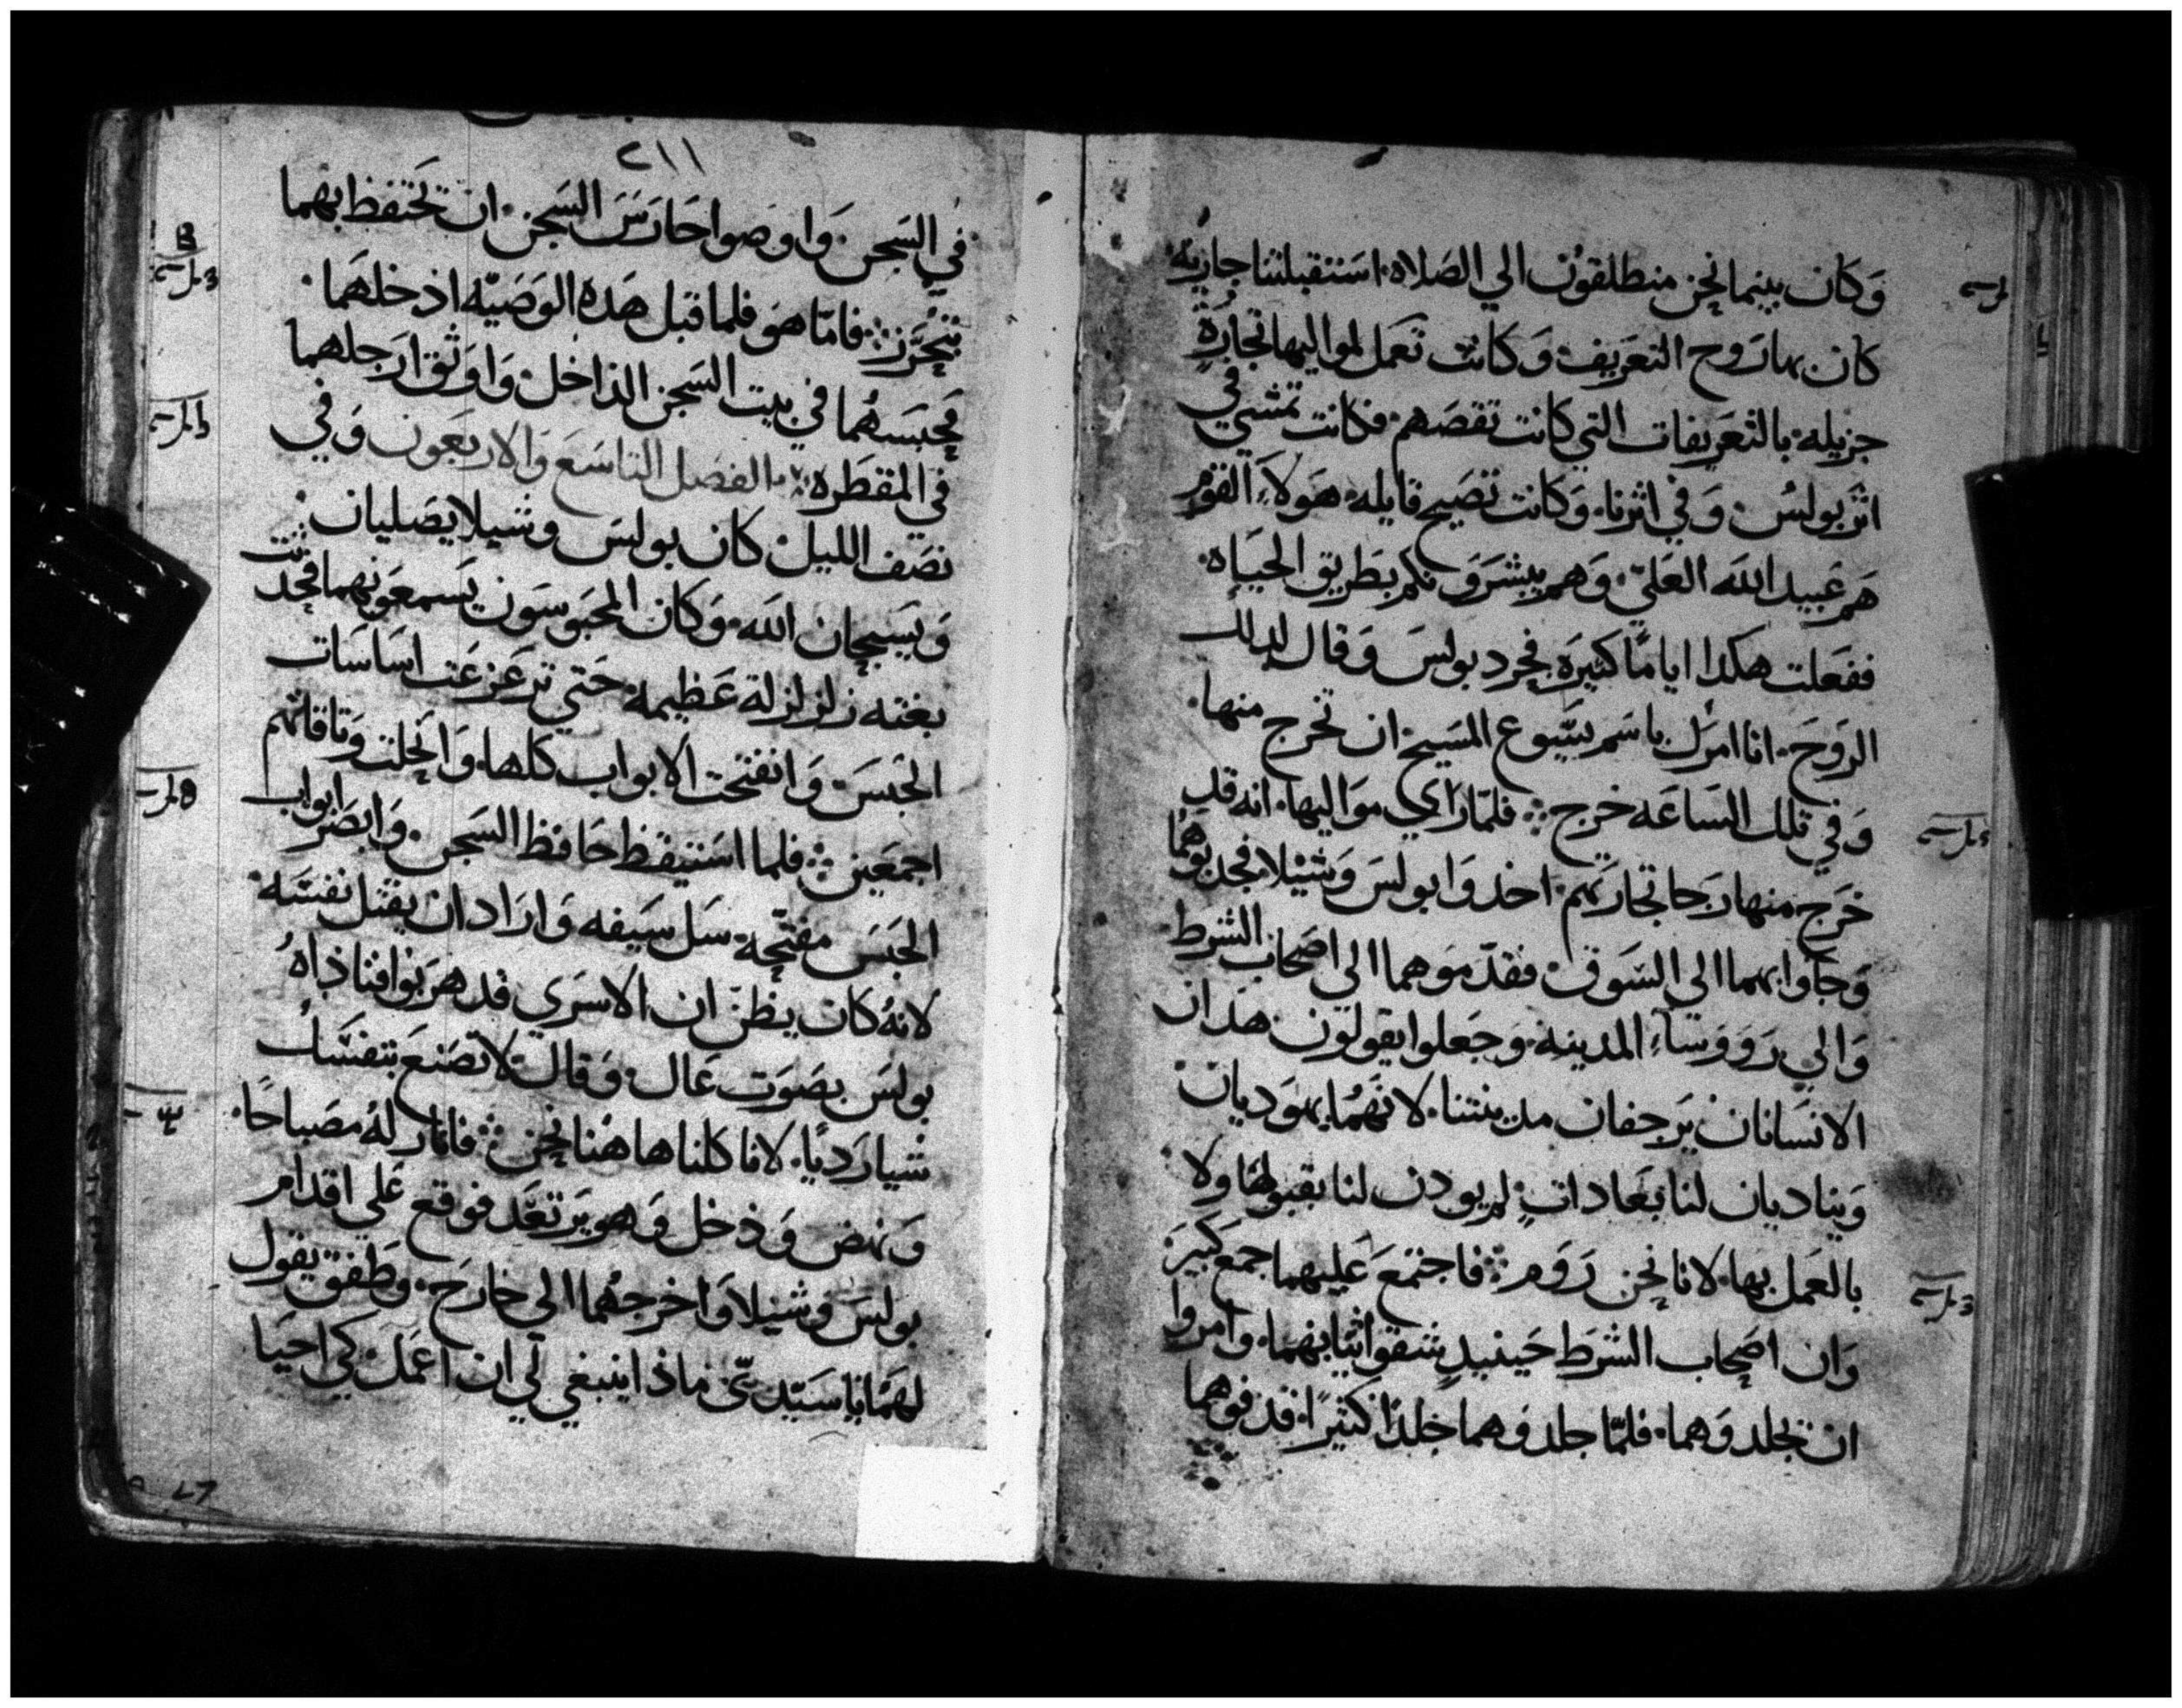 وَكَان بينما نحن منطلقوُن الي الصَلاه استقبلتنا جاريه
كان بها روح التعَريف وَكانت تعَمل لمواليها تجارةٍ
جزيله بالتعَريفات التي كانت تقصَهم فكانت تمشي في
اثر بولسُ وَفي اثرنا وَكانت تصَيح قايله هَولاَء القوم
هَم عَبيد الله العَليّ وَهم يبشرَونكم بطَريق الحَيَاه
ففعَلت هكدا ايامًا كثيرَه فحرد بولسَ وَقال لدلك
الروَحَ انا امرَك باسَم يسَوع المسَيح ان تخرج منها
وَفي تلك السَاعَه خرج فلمّا رَاي موَاليها انه قد
خرَج منها رَجا تجارتهم اخدوَا بولسَ وَشيْلا فجدبوهُما
وَجَاوا بهما الي السَوق فقدّموَهما الي اصَحاب الشرط
وَالي رَووسَاء المدينه وَجَعلوا يقولون هدَان
الانسَانان يَرجفان مدينتنا لانهَمُا يهوَديان
وَيناديان لنا بعَاداتٍ لم يودن لنا بقبولها ولا
بالعَمل بها لانا نحن رَوَم فاجتمَعَ عَليهما جمَع كبيرَ
وَان اصَحاب الشرَط حَينيدٍ شقوا ثيابهما وامروا
ان تجلدوَهما فلمّا جلدوَهما جلدًا كثيرًا قدفوهما
٢١١
في السَجن وَاوصَوا حَارَسَ السَجن ان تحَتفظ بهما
بتحَرَّز فامّا هوَ فلما قبل هَده الوَصَيّه ادخلهَما
فحَبسَهُما في بيت السَجن الداخل وَاوَثق ارَجلهما
في المقطَره الفصَل التاسَعَ وَالاربَعَون وَفي
نصَف الليل كان بولسَ وشيلا يصَليان
وَيسَبحان الله وَكان المحَبوسَون يَسمعَونهما فحدثت
بغته زلزلة عَظيمه حَتي تزعَزعَت اسَاسَات
الحَبسَ وَانفتحَت الابواب كلها وَانحَلت وَثاقاتهم
اجمعَين فلما استيقظ حَافظ السَجن وَابصَر ابواب
الحَبسَ مفتحّه سَل سَيفه وَارَاد ان يقتل نفسَه
لانهُ كان يظنّ ان الاسَري قد هرَبوا فناداهُ
بولسَ بصَوَت عَال وَقال لا تصَنعَ بنفسَك
شيا رَديًا لانا كلنا هاهَنا نحَن فانار لهُ مصَباحًا
وَنهض وَدخل وَهو يرَتعَد فوقع عَلي اقدام
بولسَ وشيلا وَاخرجهُما الي خارَج وَطَفق يقول
لهمَا ياسَيّديّ ماذا ينبغي لي ان اعَمل كي احَيَا